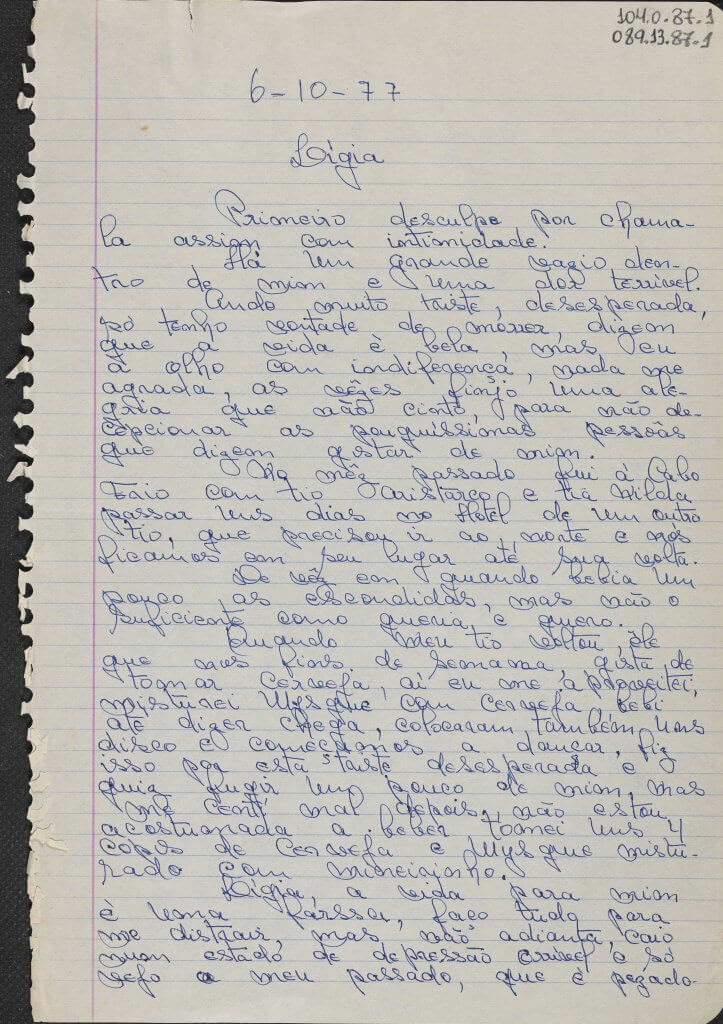 104.0.87.1
089.13.87.1
6-10-77
Lígia
Primeiro desculpe por chama-
la assim com intimidade.
Há um grande vazio den-
tro de mim e uma dor terivel.
Ando muito triste, desesperada,
só tenho vontade de morrer, dizem
que a vida é bela, mas eu
a olho com indiferença, nada me
agrada, as vêzes finjo uma ale-
gria que não cinto, para não de-
cepcionar as pouquissimas pessoâs
que dizem gostar de mim.
No mêz passado fui à Cabo
Frio com tio Aristarco e tia Nilda
passar uns dias no Hotel de um outro
tio, que precisou ir ao norte e nós
ficamos em seu lugar até sua volta.
De vêz em quando bebia um
pouco as escondidas, mas não o
suficiente como queria e quero.
Quando meu tio voltou, êle
que nos fins de semana, gosta de
tomar cerveja, ai eu me aproveitei,
misturei Wysque com cerveja, bebi
até dizer chega, colocaram também uns
disco e começamos a dançar, fiz
isso por está triste desesperada e
quiz fugir um pouco de mim, mas
me centi mal depois, não estou
acostumada a beber tomei uns 4
copos de cerveja e Wysque mistu-
rado com mineirinho.
Lígia, a vida para mim
é uma farssa, faço tudo para
me distrair, mas não adianta, caio
num estado de depressão cruel e só
vejo o meu passado, que é pezado-